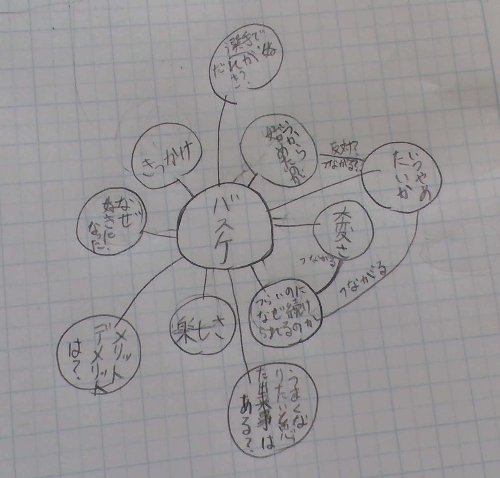 選手で
だれが好
き?
きっかけ
いつから
始めたのか
反対?
つながる?
いつやめ
たいか
なぜ
好きに
なった
バスケ
大変さ
つながる
つながる
つらいのに
なぜ続け
られるのか
楽しさ
メリット
デメリット
は?
うまくな
りたいと思っ
た出来事は
ある?